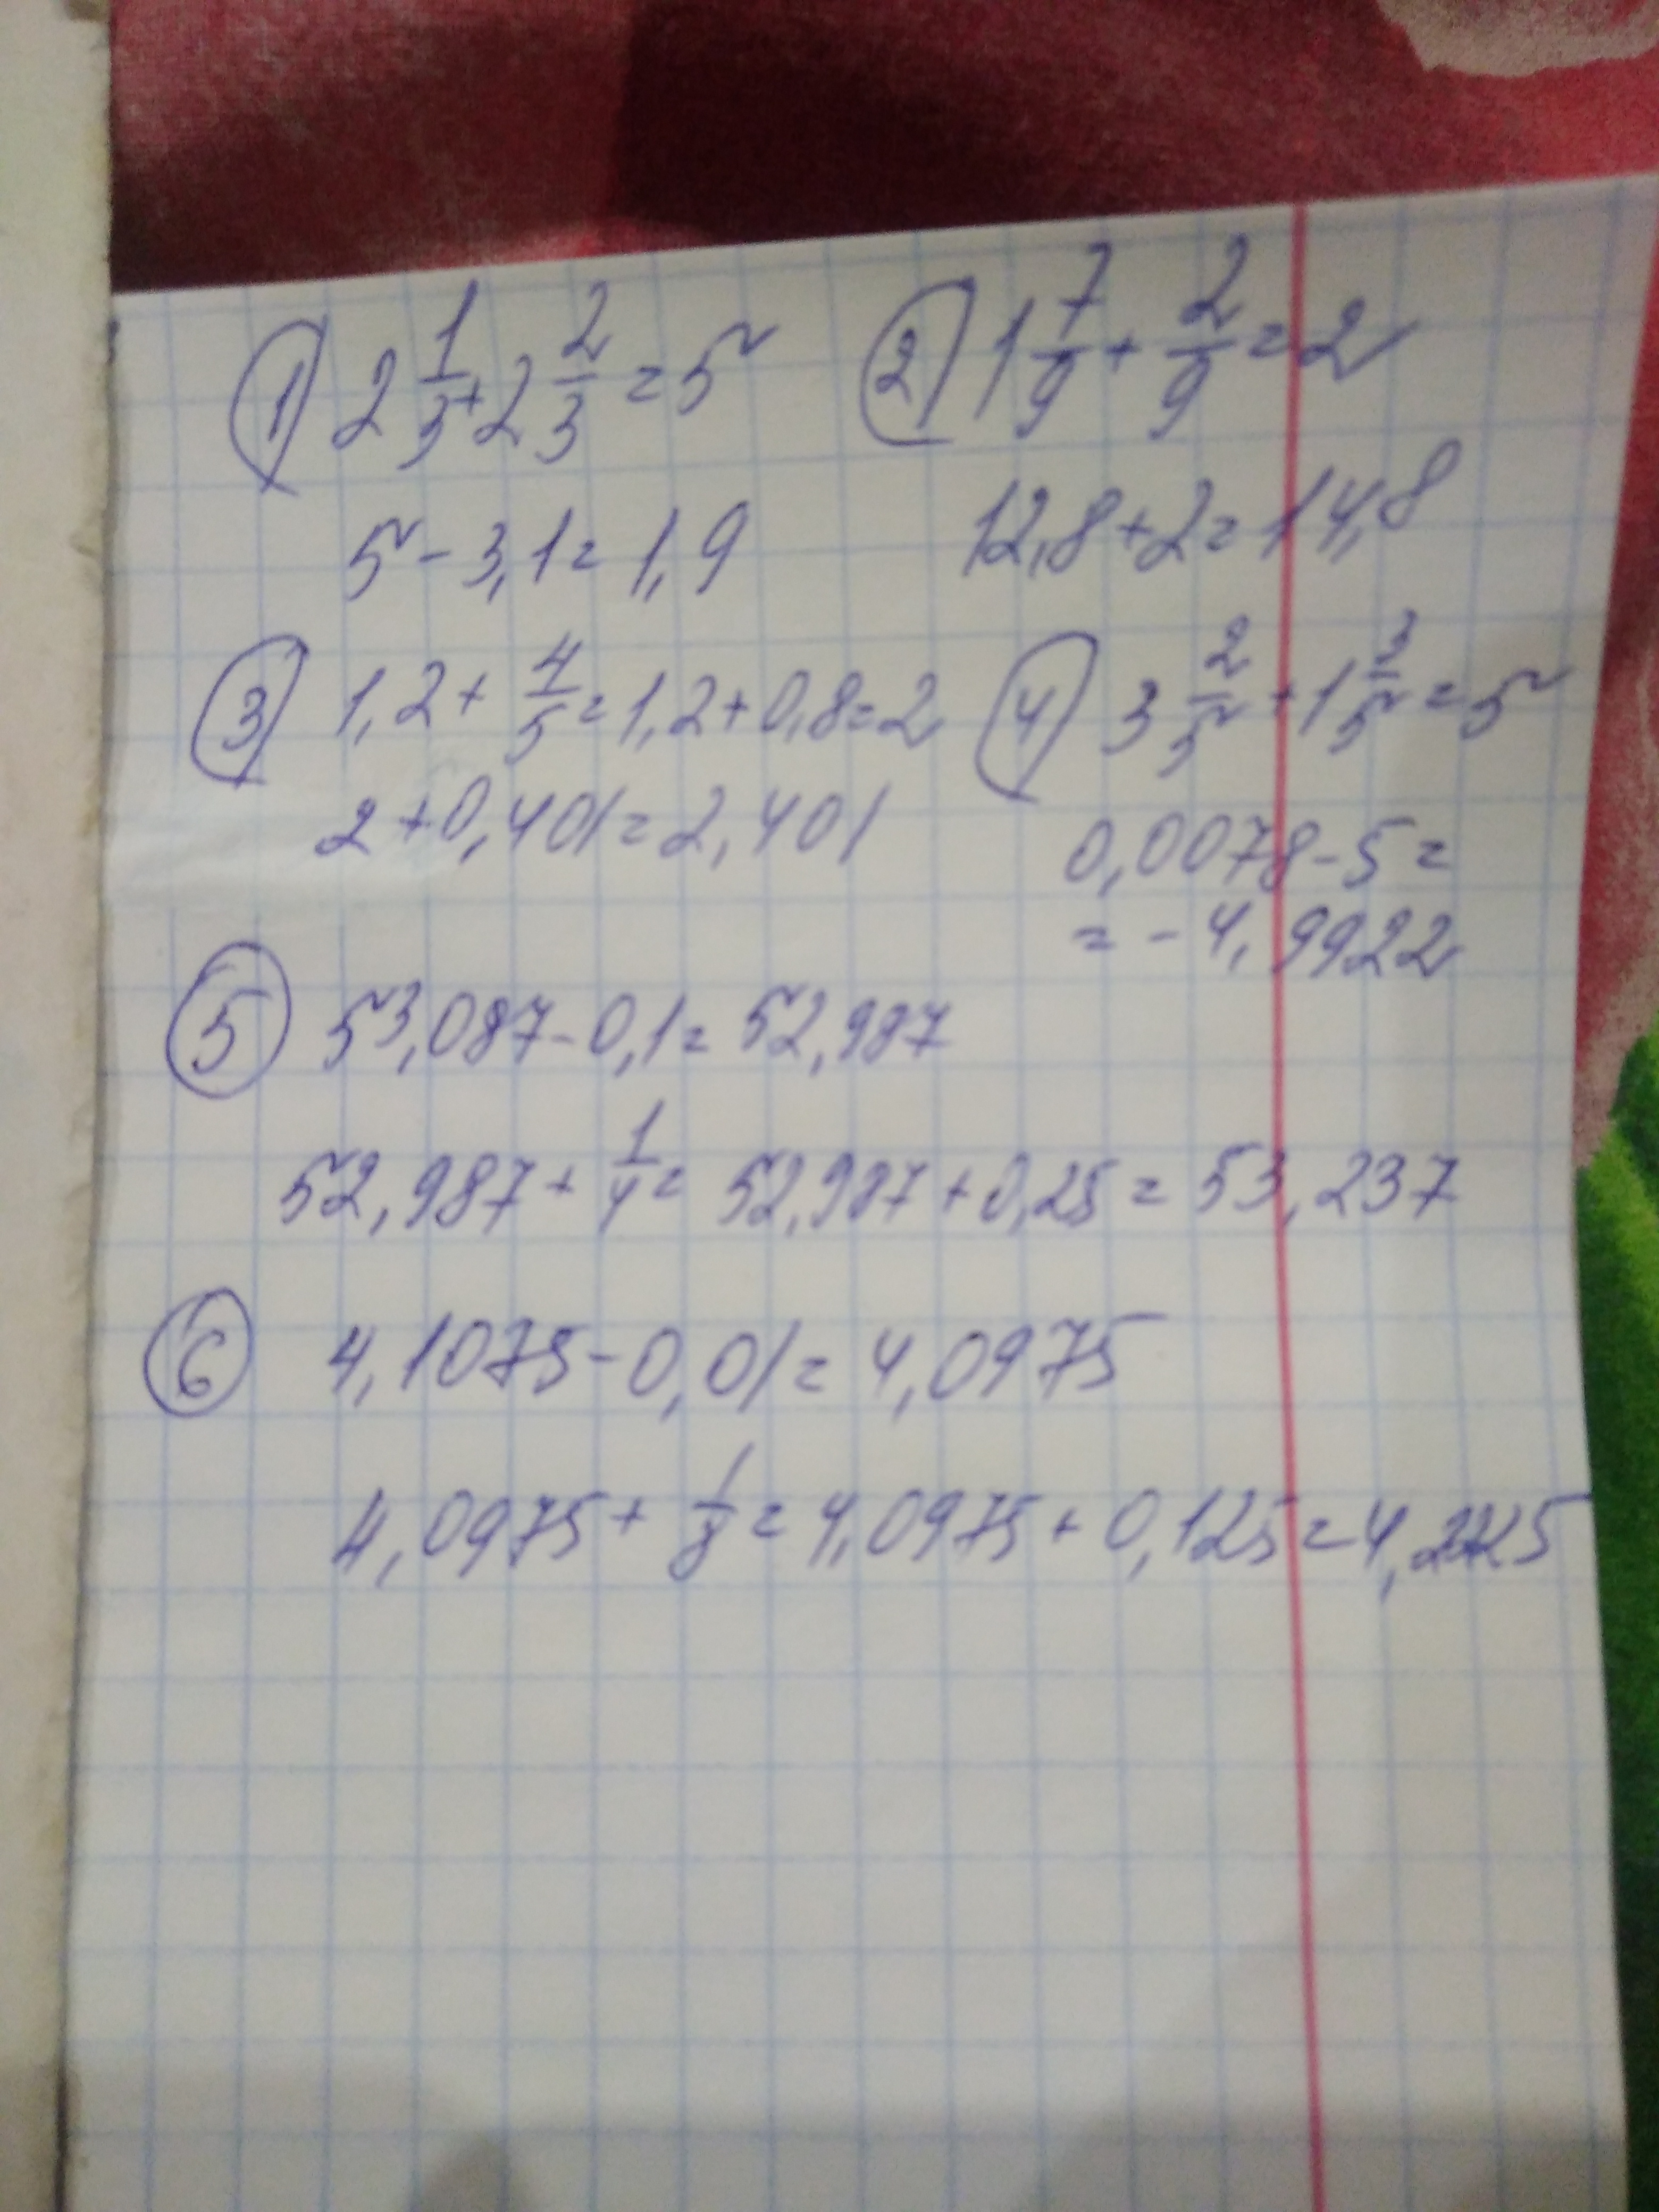 ① 2 1/3 + 2 2/3 = 5
5 - 3,1 = 1,9
② 1 7/9 + 2/9 = 2
12,8 + 2 = 14,8
③ 1,2 + 4/5 = 1,2 + 0,8 = 2
2 + 0,401 = 2,401
④ 3 2/5 + 1 3/5 = 5
0,0078 - 5 =
= - 4,9922
⑤ 53,087 - 0,1 = 52,987
52,987 + 1/4 = 52,987 + 0,25 = 53,237
⑥ 4,1075 - 0,01 = 4,0975
4,0975 + 1/8 = 4,0975 + 0,125 = 4,2225